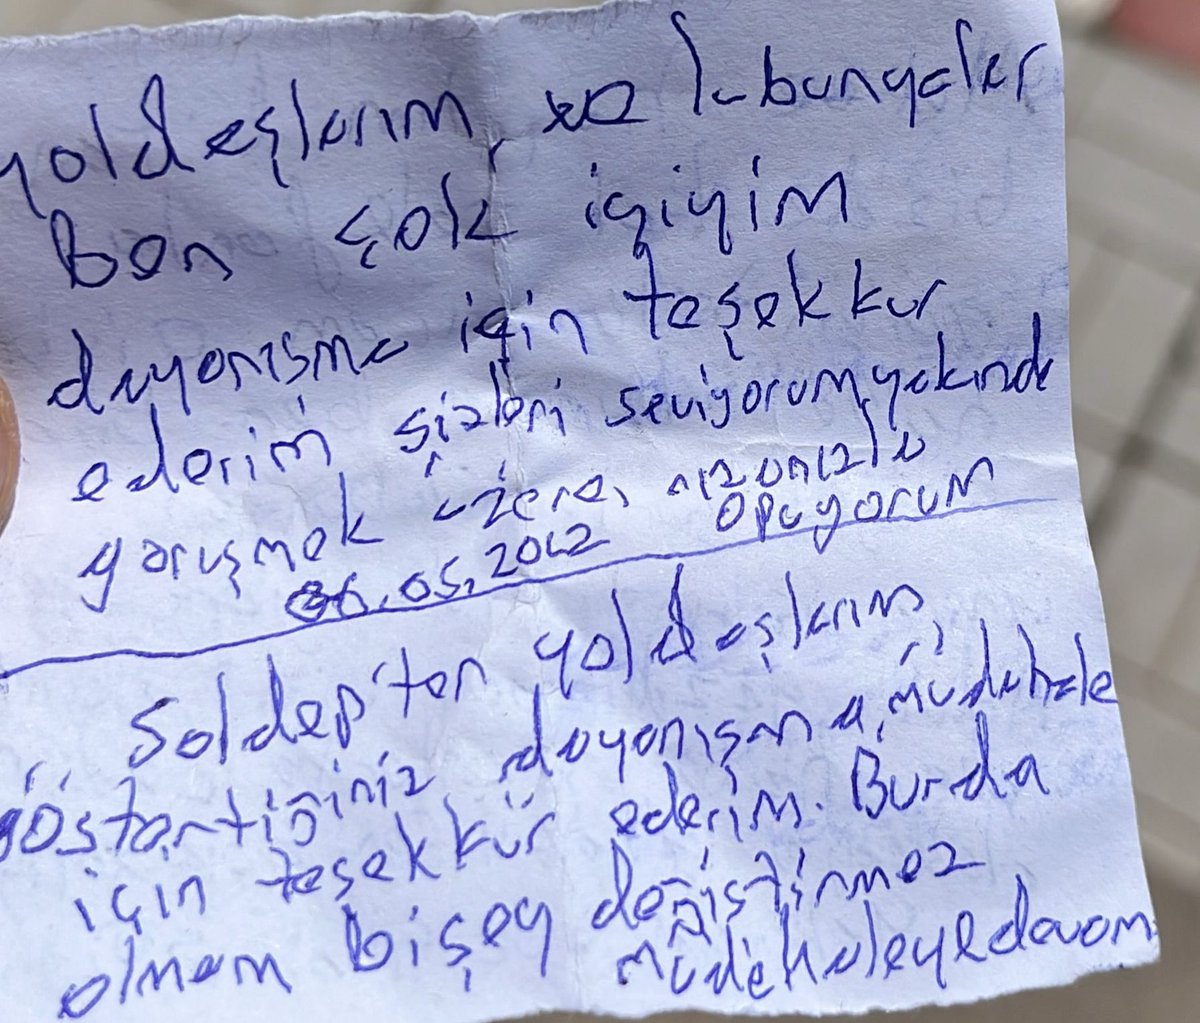 yoldaşlarım ve lubunyalar
Ben çok iyiyim
dayanışma için teşekkur
ederim sizleri seviyorum yakında
görüşmek üzere,
opuyorum
06.05.2012
Soldep'ten yoldaşlarım
göstertiğiniz dayanışma, müdahale
için teşekkür ederim. Burda
olmam bişey değiştirmez
müdehaleye devam